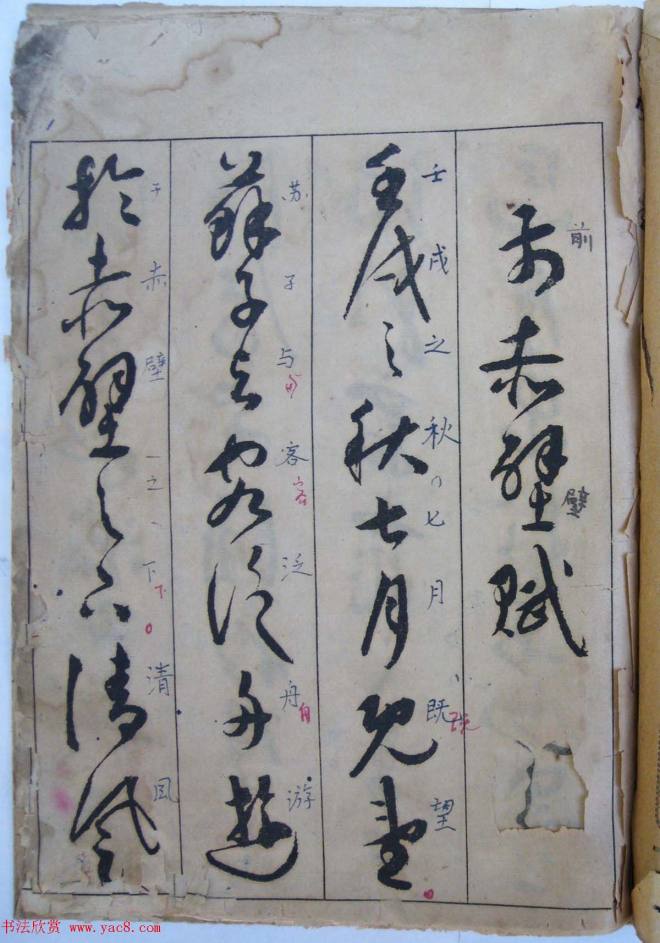 前赤壁赋
壬戌之秋七月既望
蘇子与客泛舟遊
於赤壁之下清風
前
壁
壬戌之秋七月既望
既
苏子与客泛舟游
与
客
舟
于赤壁之下清风
下
书法欣赏 www.yac8.com